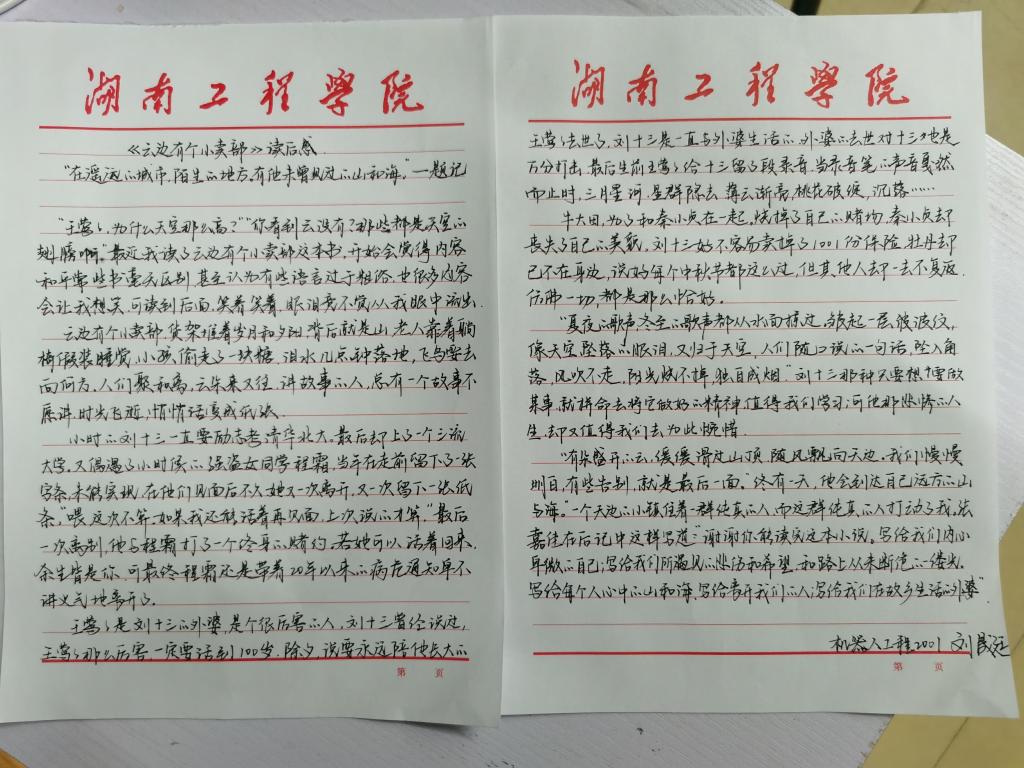 湖南工程学院
《云边有个小卖部》读后感
"在遥远的城市,陌生的地方,有他未曾见过的山和海。"一题记
"王莺莺,为什么天空那么高?""你看到云没有?那些都是天空的
翅膀啊"。最近我读了云边有个小卖部这本书,开始会觉得内容
和平常些书毫无区别,甚至认为有些语言过于粗俗,也很多内容
会让我想笑,可读到后面,笑着笑着,眼泪竟不觉从我眼中流出.
云边有个小卖部,货架堆着岁月和夕阳,背后就是山,老人靠着躺
椅假装睡觉,小孩偷走了一块糖,泪水几点钟落地,飞鸟要去
向何方,人们聚和离,云朵来又往,讲故事的人,总有一个故事不
愿讲,时光飞逝,悄悄话变成纸张.
小时的刘十三一直要励志考清华北大。最后却上了一个三流
大学,又偶遇了小时候的强盗女同学程霜,当年在走前留下了一张
字条,未能实现,在他们见面后不久,她又一次离开,又一次留下一张纸
条."喂,这次不算,如果我还能活着再见面,上次说的才算."最后
一次离别,他与程霜打了一个终身的赌约,若她可以活着回来,
余生皆是你,可最终程霜还是带着20年以来的病危通知单不
讲义式地离开了。
王莺莺是刘十三的外婆,是个很厉害的人,刘十三曾经说过,
王莺莺那么厉害一定要活到100岁,除夕,说要永远陪他长大的
第 页
湖南工程学院
王莺莺去世了,刘十三是一直与外婆生活的,外婆的去世对十三也是
万分打击,最后生前王莺莺给十三留了段录音,当录音笔的声音戛然
而止时,三月星河,星群隐去,薄云渐亮,桃花破绽,沉落……
牛大田,为了和秦小贞在一起,烧掉了自己的赌场,秦小贞却
丧失了自己的美貌,刘十三好不容易卖掉了1001份保险,牡丹却
已不在身边,说好每个中秋节都这么过,但其他人却一去不复返,
仿佛一切,都是那么恰好。
"夏夜的歌声,冬至的歌声都从水面掠过,皱起一层波波纹,
像天空坠落的眼泪,又归于天空,人们随口说的一句话,坠入角
落,风吹不走,阳光烧不掉,独自成烟"刘十三那种只要想要做
某事,就拼命去将它做好的精神,值得我们学习,可他那悲惨的人
生,却又值得我们去为此惋惜.
"有朵盛开的云,缓缓滑过山顶,随风飘向天边,我们慢慢
明白,有些告别,就是最后一面。"终有一天,他会到达自己远方的山
与海。一个天边的小镇住着一群纯真的人,而这群纯真的人打动了我,张
嘉佳在后记中这样写道:"谢谢你能读完这本小说。写给我们内心
卑微的自己;写给我们所遇见的悲伤和希望,和路上从未断绝的一缕光.
写给每个人心中的山和海,写给离开我们的人,写给我们在故乡生活的外婆"
机器人工程2001 刘
第 页